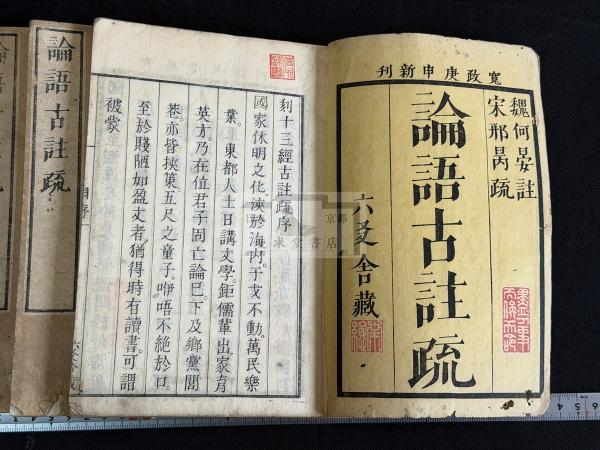 寬政庚申新刊
魏何晏註
宋邢昺疏
論語古註疏
六爻舍藏
刻十三經古註疏序
國家休明之化。湙於海內。干戈不動。萬民樂
業。東都人士日講文學。鉅儒輩出。家育
英才。乃在位君子固亡論已。下及鄉黨閭
巷。亦皆挾筴五尺之童子。咿唔不絕於口。
至於賤陋如盈丈者。猶得時有讀書。可謂
被蒙
論語古註疏
京都
求堂書店